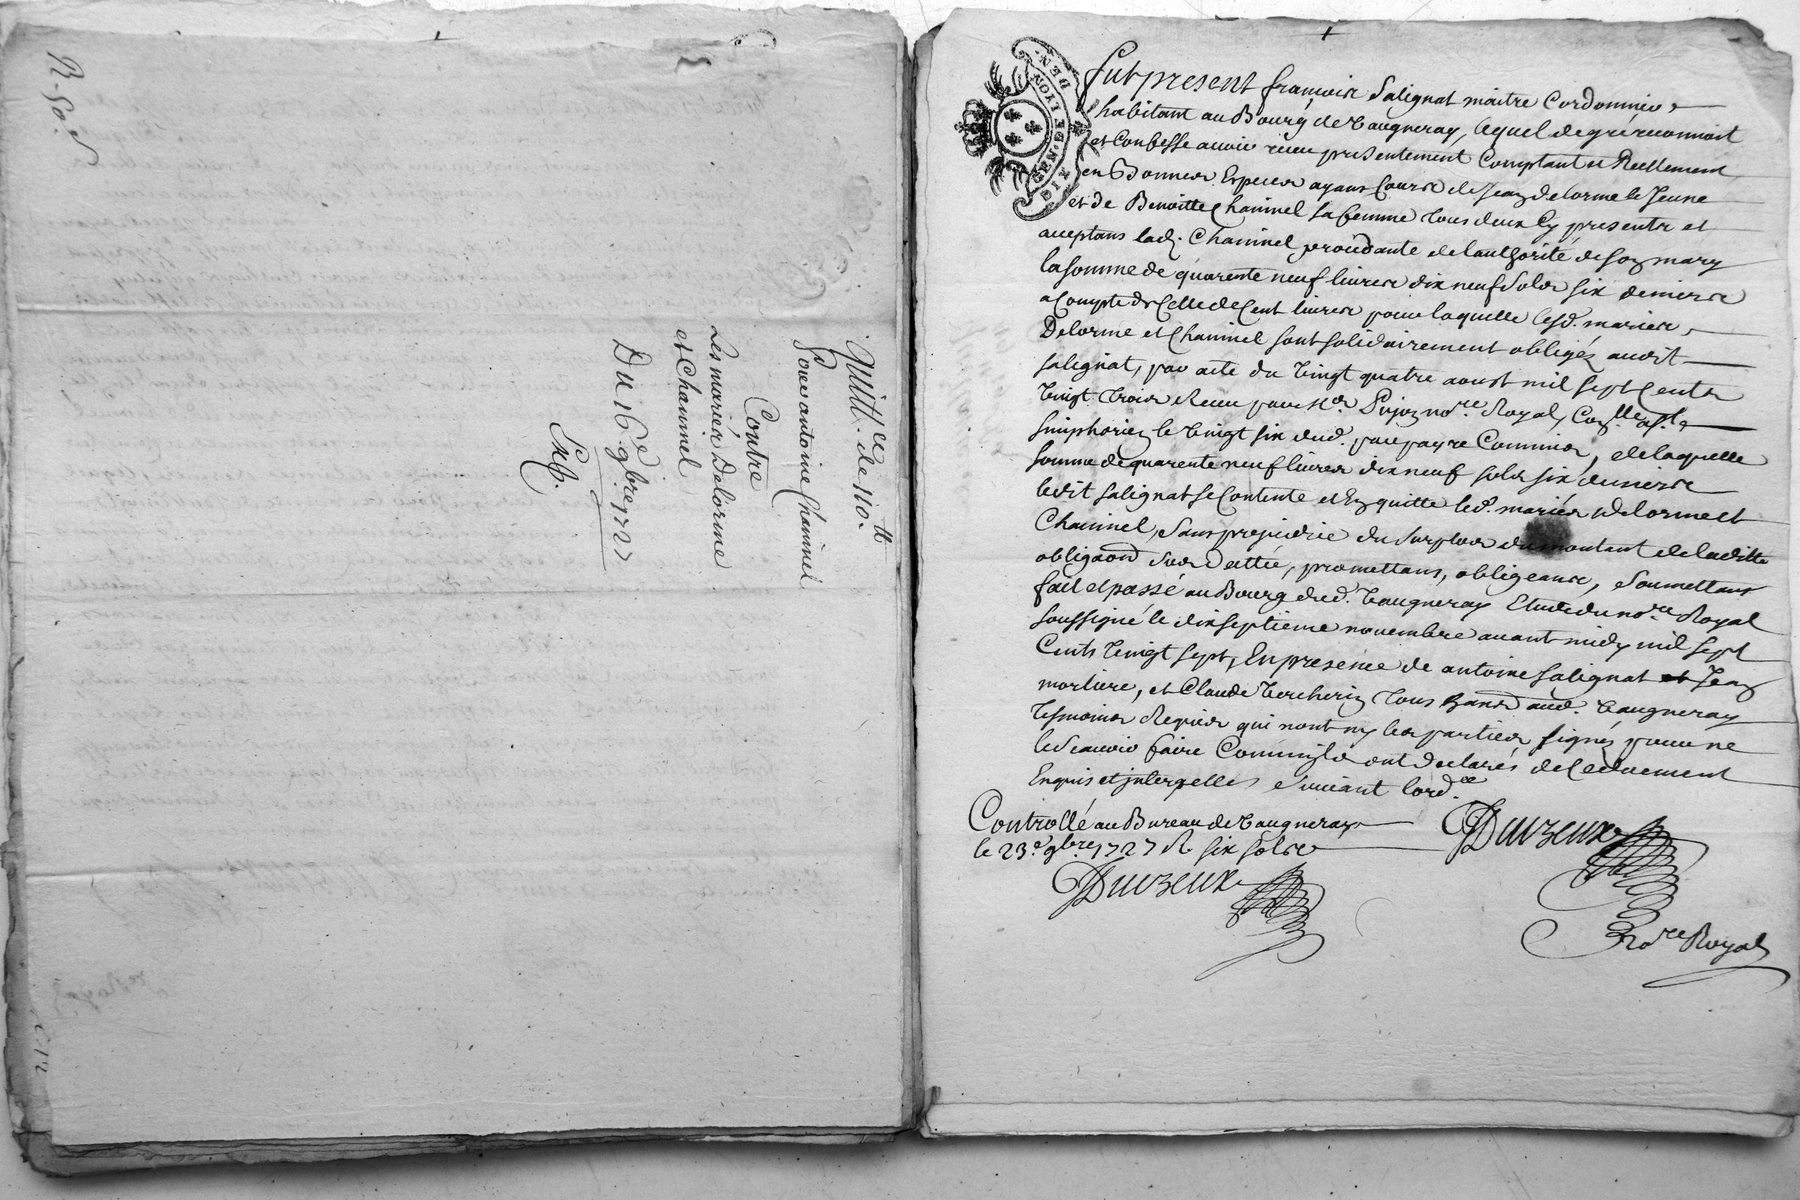 R. 50.s
Quitt.ce de 110.tt
Pour antoine Chaninel
Contre
Les mariés Delorme
et Chaninel
Du 16.e 9bre 1727
Exp.
GEN. DE LYON
DIX DEN.
Fut present françois Salignat maitre Cordonnier
habitant au Bourg de Vaugneray, lequel de gré reconnoit
et Confesse avoir receu presentement Comptant et Reellement
en Bonnes Especes ayans Cours de Jean Delorme le Jeune
et de Benoitte Chaninel sa femme tous deux Cy presents et
acceptans lad. Chaninel procédante de l'authorité de son mary
la somme de quarente neuf livres dix neuf sols six deniers
a Compte de Celle de Cent livres pour laquelle lesd. mariés
Delorme et Chaninel sont solidairement obligés audit
Salignat, par acte du vingt quatre aoust mil sept Cents
vingt trois Receu par M.e Pujon no.re Royal,
Simphorien le vingt six dud. par payre Commis, de laquelle
somme de quarente neuf livres dix neuf sols six deniers
ledit Salignat se Contente et En quitte led. mariés Delorme et
Chaninel, Sans prejudice du surplus du montant de laditte
obligaon. sus dattée, promettans, obligeants, Soumettans
fait et passé au Bourg dud. Vaugneray Etude du no.re Royal
soussigné le dix septieme novembre avant midy mil sept
Cents vingt sept, En presence de antoine Salignat Jean
mortiere, et Claude Vercherin tous dud. Vaugneray
tesmoins Requis qui n'ont ny les parties signés pour ne
le Scauoir faire Comm'ils ont declarés de Ce duement
Enquis et interpellés Suivant l'ord.ce
Controllé au Bureau de Vaugneray
le 23.e 9bre 1727 R. six sols
Duvzeux
Duvzeux
No.re Royal